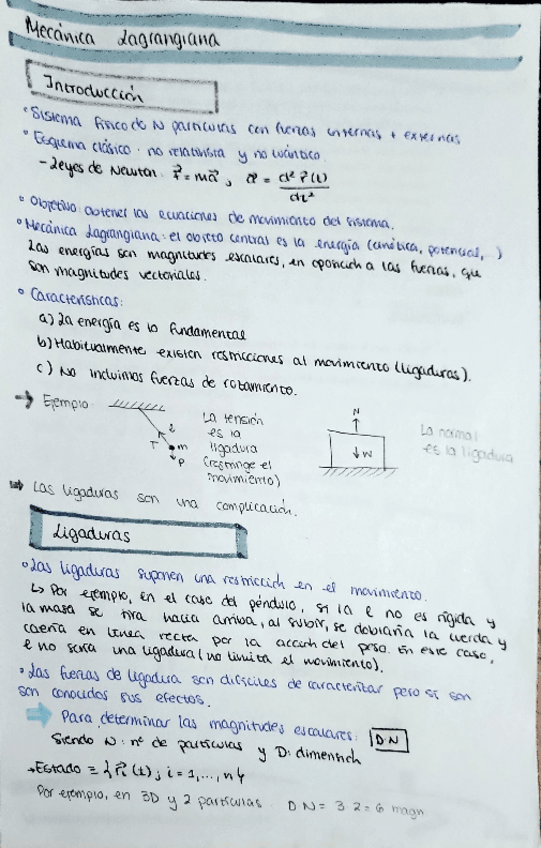 Mecánica Lagrangiana
Introducción
• Sistema físico de N partículas con fuerzas internas + externas
• Esquema clásico: no relativista y no cuántico.
- Leyes de Newton: F⃗ = ma⃗, a⃗ = d² r⃗(t) / dt²
• Objetivo: obtener las ecuaciones de movimiento del sistema.
• Mecánica Lagrangiana: el objeto central es la energía (cinética, potencial,...)
Las energías son magnitudes escalares, en oposición a las fuerzas, que
son magnitudes vectoriales.
• Características:
a) La energía es lo fundamental
b) Habitualmente existen restricciones al movimiento (ligaduras).
c) No incluimos fuerzas de rozamiento.
→ Ejemplo
La tensión
es la
ligadura
(restringe el
movimiento)
l
T
m
P
N
W
La normal
es la ligadura
⇒ Las ligaduras son una complicación.
Ligaduras
• Las ligaduras suponen una restricción en el movimiento.
↳ Por ejemplo, en el caso del péndulo, si la l no es rígida y
la masa se tira hacia arriba, al subir, se doblaría la cuerda y
caería en línea recta por la acción del peso. En este caso,
l no sería una ligadura (no limita el movimiento).
• Las fuerzas de ligadura son difíciles de caracterizar pero sí son
son conocidos sus efectos.
⇒ Para determinar las magnitudes escalares: D·N
Siendo N: nº de partículas y D: dimensión
→ Estado ≡ {r⃗ᵢ(t); i = 1,..., n}
Por ejemplo, en 3D y 2 partículas: D·N = 3·2 = 6 magn